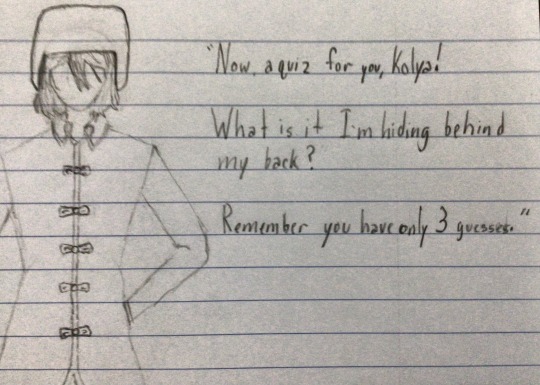 "Now, a quiz for you, Kolya!
What is it I'm hiding behind
my back?
Remember you have only 3 guesses."